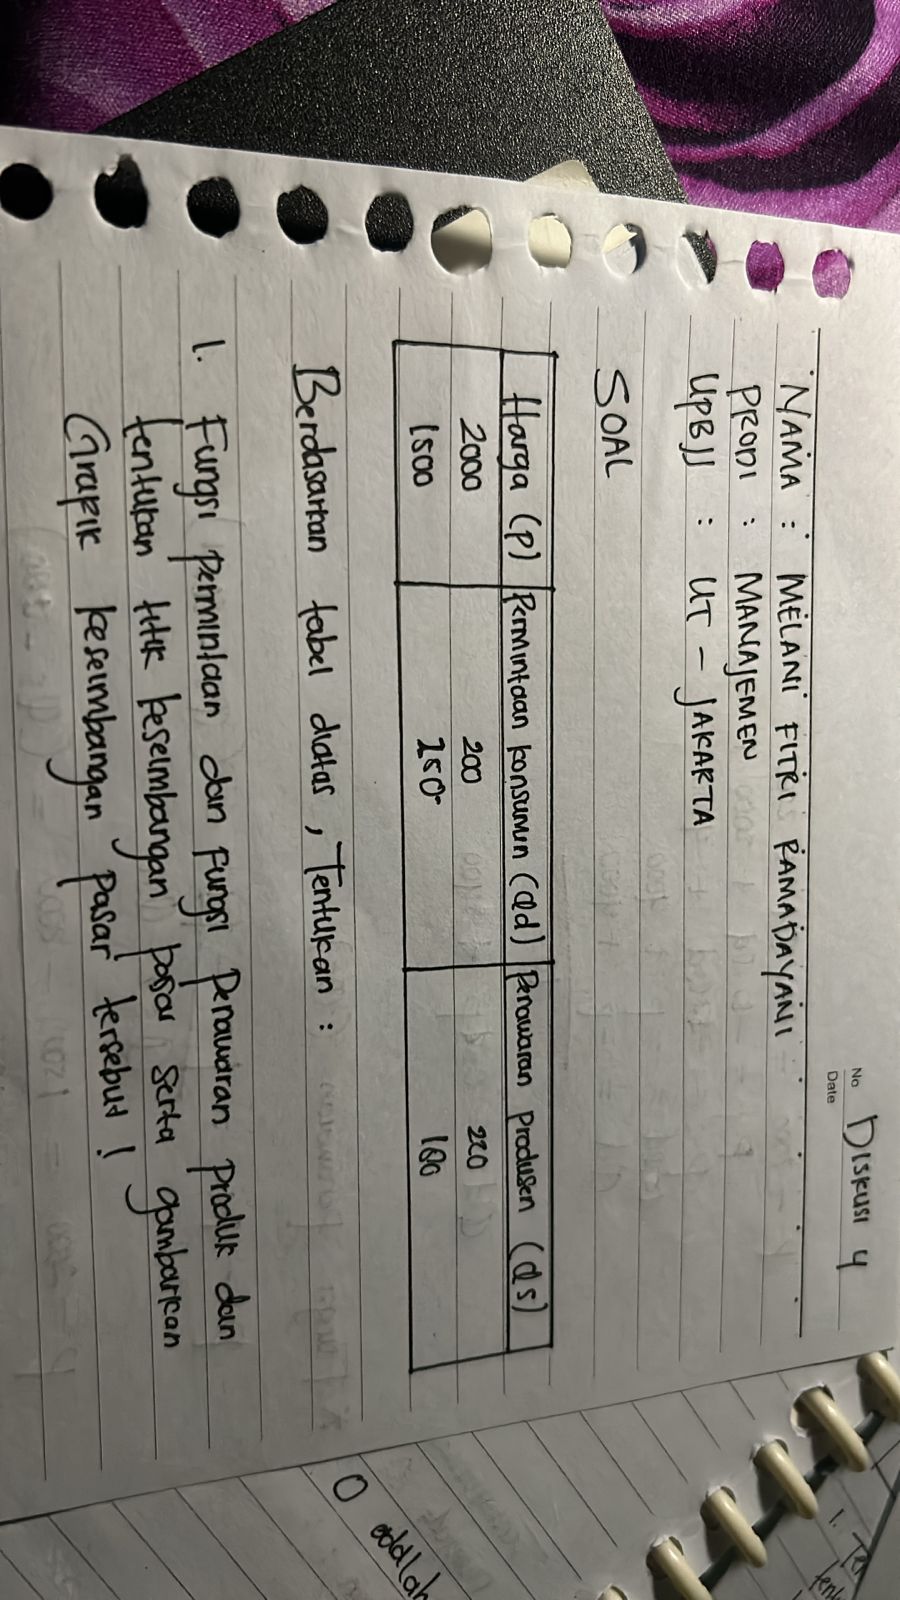 DISKUSI 4
No
Date
NAMA : MELANI FITRI RAMADAYANI
PRODI : MANAJEMEN
UPBJJ : UT - JAKARTA
SOAL
Harga (p) Permintaan konsumen (Qd) Penawaran Produsen (Qs)
2000 200 220
1500 250 180
Berdasarkan tabel diatas, Tentukan :
1. Fungsi permintaan dan fungsi penawaran produk dan
tentukan titik keseimbangan pasar serta gambarkan
Grafik keseimbangan pasar tersebut !
O adalah
1.